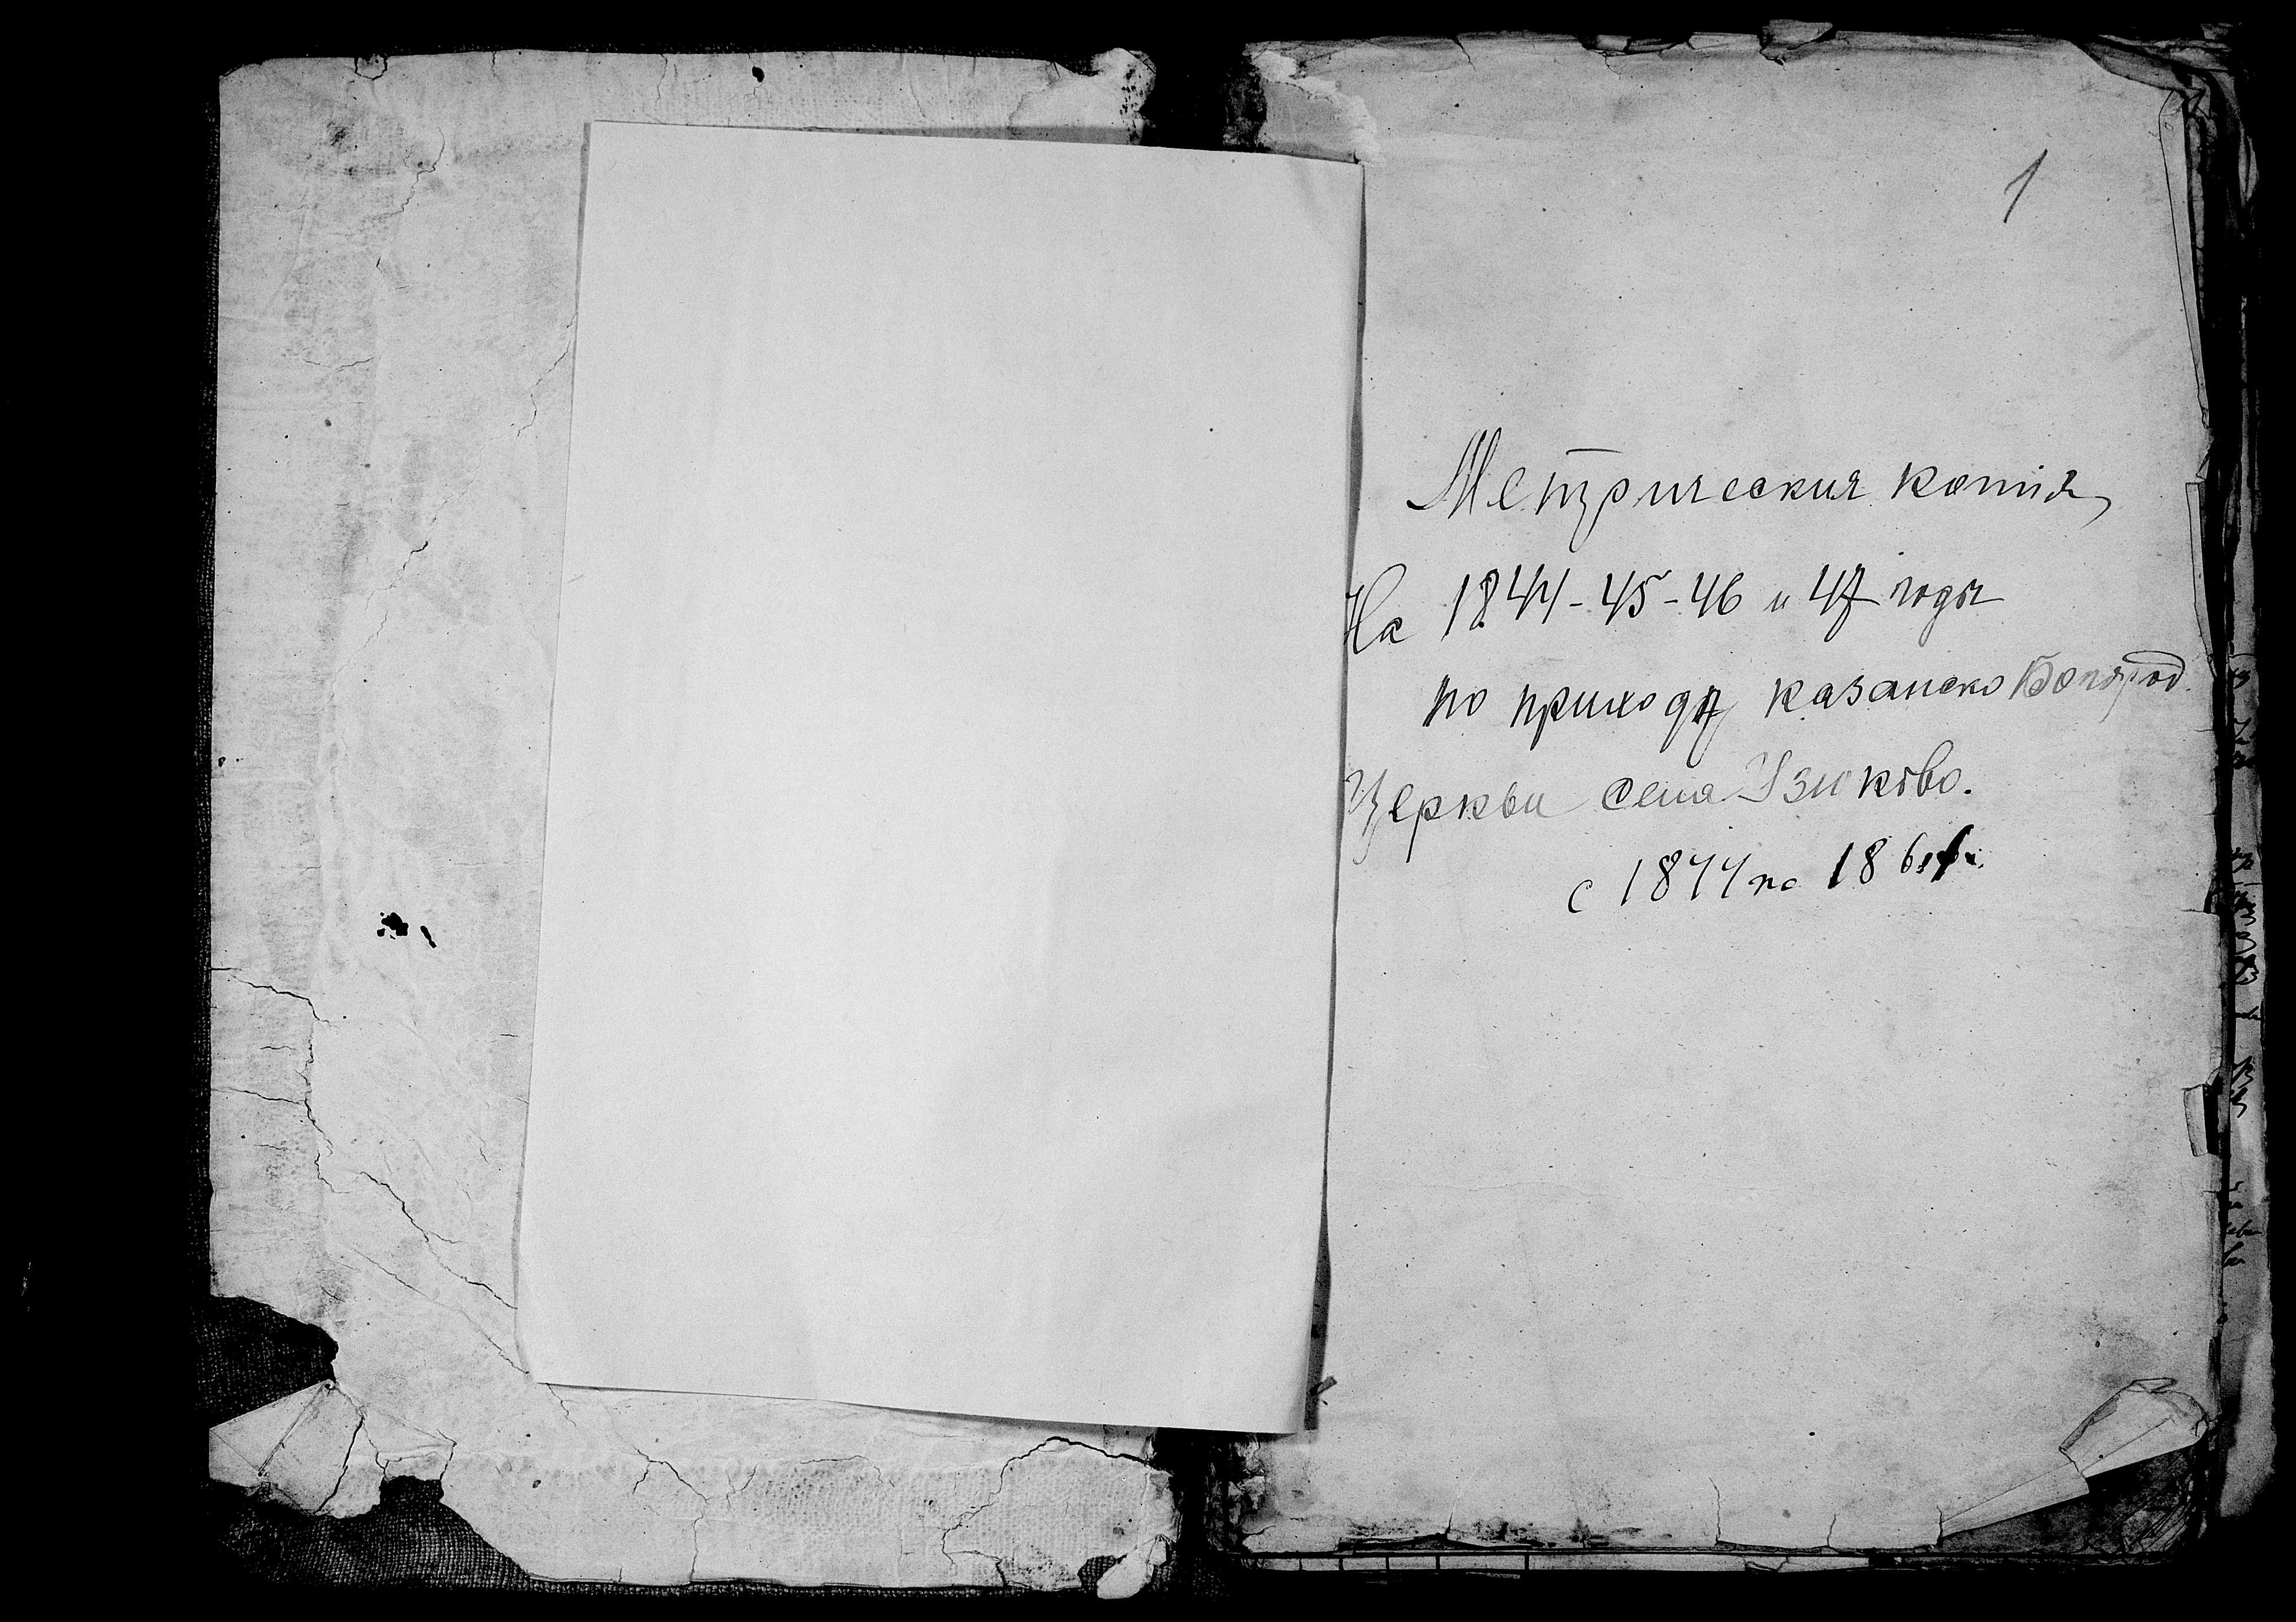 1
Метрическия копія
На 1844-45-46 и 47 годы
по приходу казанско Богород.
Церкви села Узюково.
с 1844 по 1861